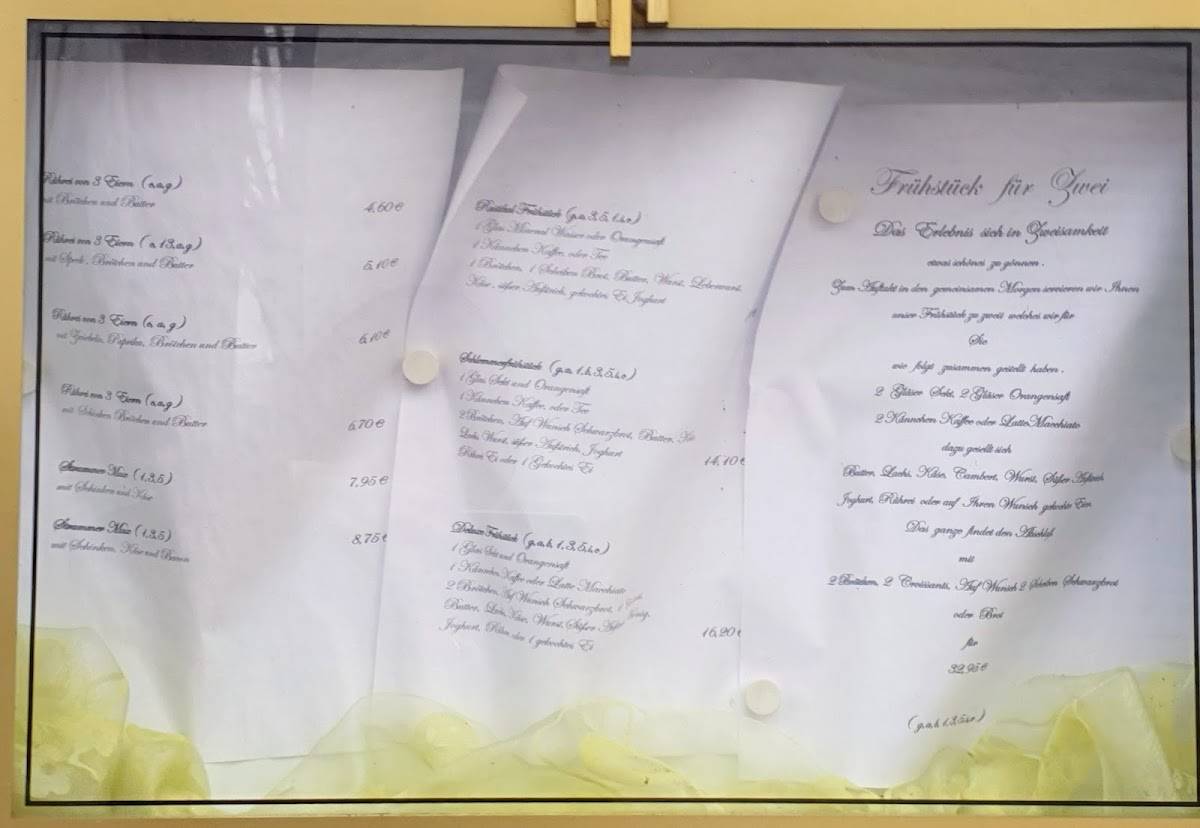 Rührei von 3 Eiern (a,a,g)
mit Brötchen und Butter 4,60€
Rührei von 3 Eiern (a,1,3,a,g)
mit Speck, Brötchen und Butter 5,10€
Rührei von 3 Eiern (a,a,g)
mit Zwiebeln, Paprika, Brötchen und Butter 5,10€
Rührei von 3 Eiern (a,a,g)
mit Schinken Brötchen und Butter 6,70€
Strammer Max (1,3,5)
mit Schinken und Käse 7,95€
Strammer Max (1,3,5)
mit Schinken, Käse und Bacon 8,75€
Frühstück
1 Glas Mineral Wasser oder Orangensaft
1 Kännchen Kaffee, oder Tee
1 Brötchen, 1 Scheiben Brot, Butter, Wurst, Leberwurst,
Käse, süßer Aufstrich, gekochtes Ei, Joghurt
Schlemmerfrühstück
1 Glas Sekt und Orangensaft
1 Kännchen Kaffee, oder Tee
2 Brötchen, Auf Wunsch Schwarzbrot, Butter, Kä
Lachs, Wurst, süßer Aufstrich, Joghurt
Rührei Ei oder 1 Gekochtes Ei 14,10€
Frühstück
1 Glas Sekt und Orangensaft
1 Kännchen Kaffee oder Latte Macchiato
2 Brötchen, Auf Wunsch Schwarzbrot, 1
Butter, Lachs, Käse, Wurst, Süßer
Joghurt, oder 1 gekochtes Ei 16,20€
Frühstück für Zwei
Das Erlebnis sich in Zweisamkeit
etwas schönes zu gönnen.
Zum Auftakt in den gemeinsamen Morgen servieren wir Ihnen
unser Frühstück zu zweit welches wir für
Sie
wie folgt zusammen gestellt haben.
2 Gläser Sekt, 2 Gläser Orangensaft
2 Kännchen Kaffee oder LatteMacchiato
dazu gesellt sich
Butter, Lachs, Käse, Cambert, Wurst, Süßer Aufstrich
Joghurt, Rührei oder auf Ihren Wunsch gekochte Eier.
Das ganze findet den Abschluß
mit
2 Brötchen, 2 Croissants, Auf Wunsch 2 Scheiben Schwarzbrot
oder Brot
für
32,95€